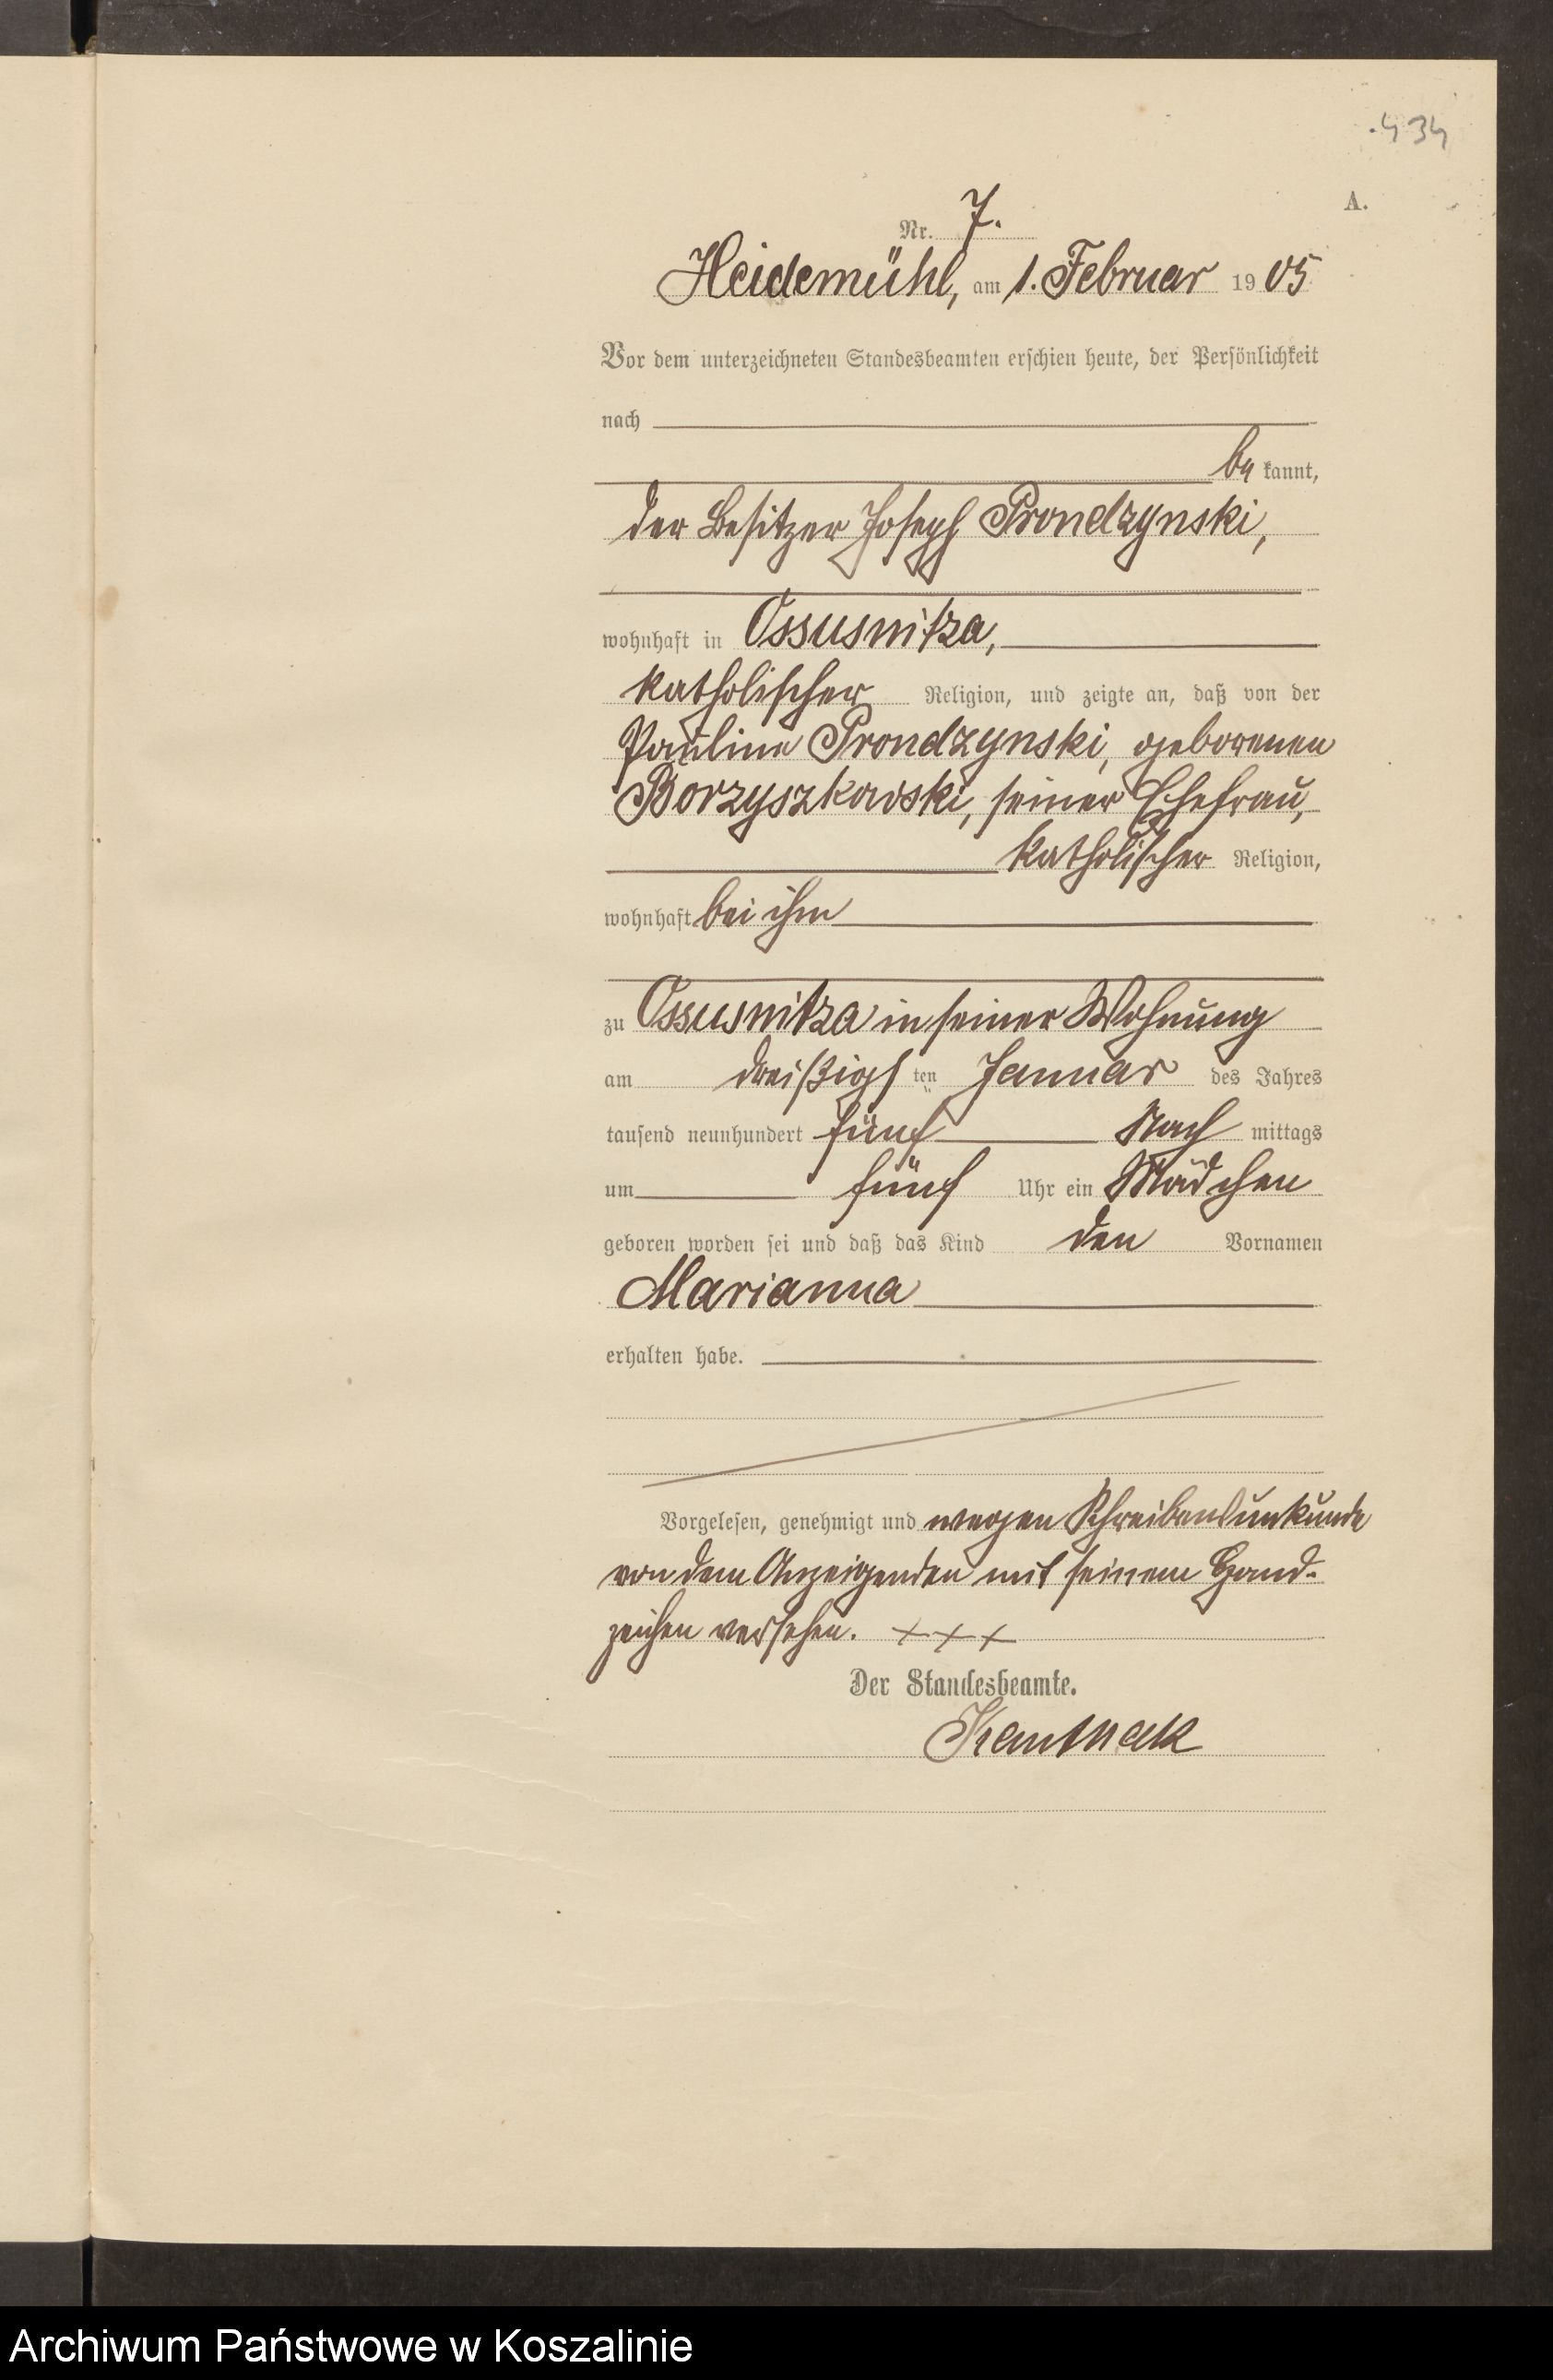 434
A.
Nr. 7.
Heidemühl, am 1. Februar 1905
Vor dem unterzeichneten Standesbeamten erschien heute, der Persönlichkeit
nach
be kannt,
der Besitzer Joseph Prondzynski,
wohnhaft in Ossusnitza,
katholischer Religion, und zeigte an, daß von der
Pauline Prondzynski, geborenen
Borzyszkowski, seiner Ehefrau,
katholischer Religion,
wohnhaft bei ihm
zu Ossusnitza in seiner Wohnung
am dreißigsten Januar des Jahres
tausend neunhundert fünf Nach mittags
um fünf Uhr ein Mädchen
geboren worden sei und daß das Kind den Vornamen
Marianna
erhalten habe.
Vorgelesen, genehmigt und wegen Schreibensunkunde
von dem Anzeigenden mit seinem Hand-
zeichen versehen. + + +
Der Standesbeamte.
Archiwum Państwowe w Koszalinie